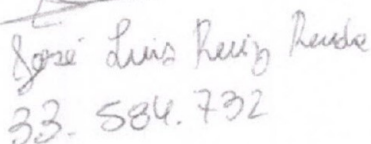 José Luis Ruiz Rueda
33.584.732